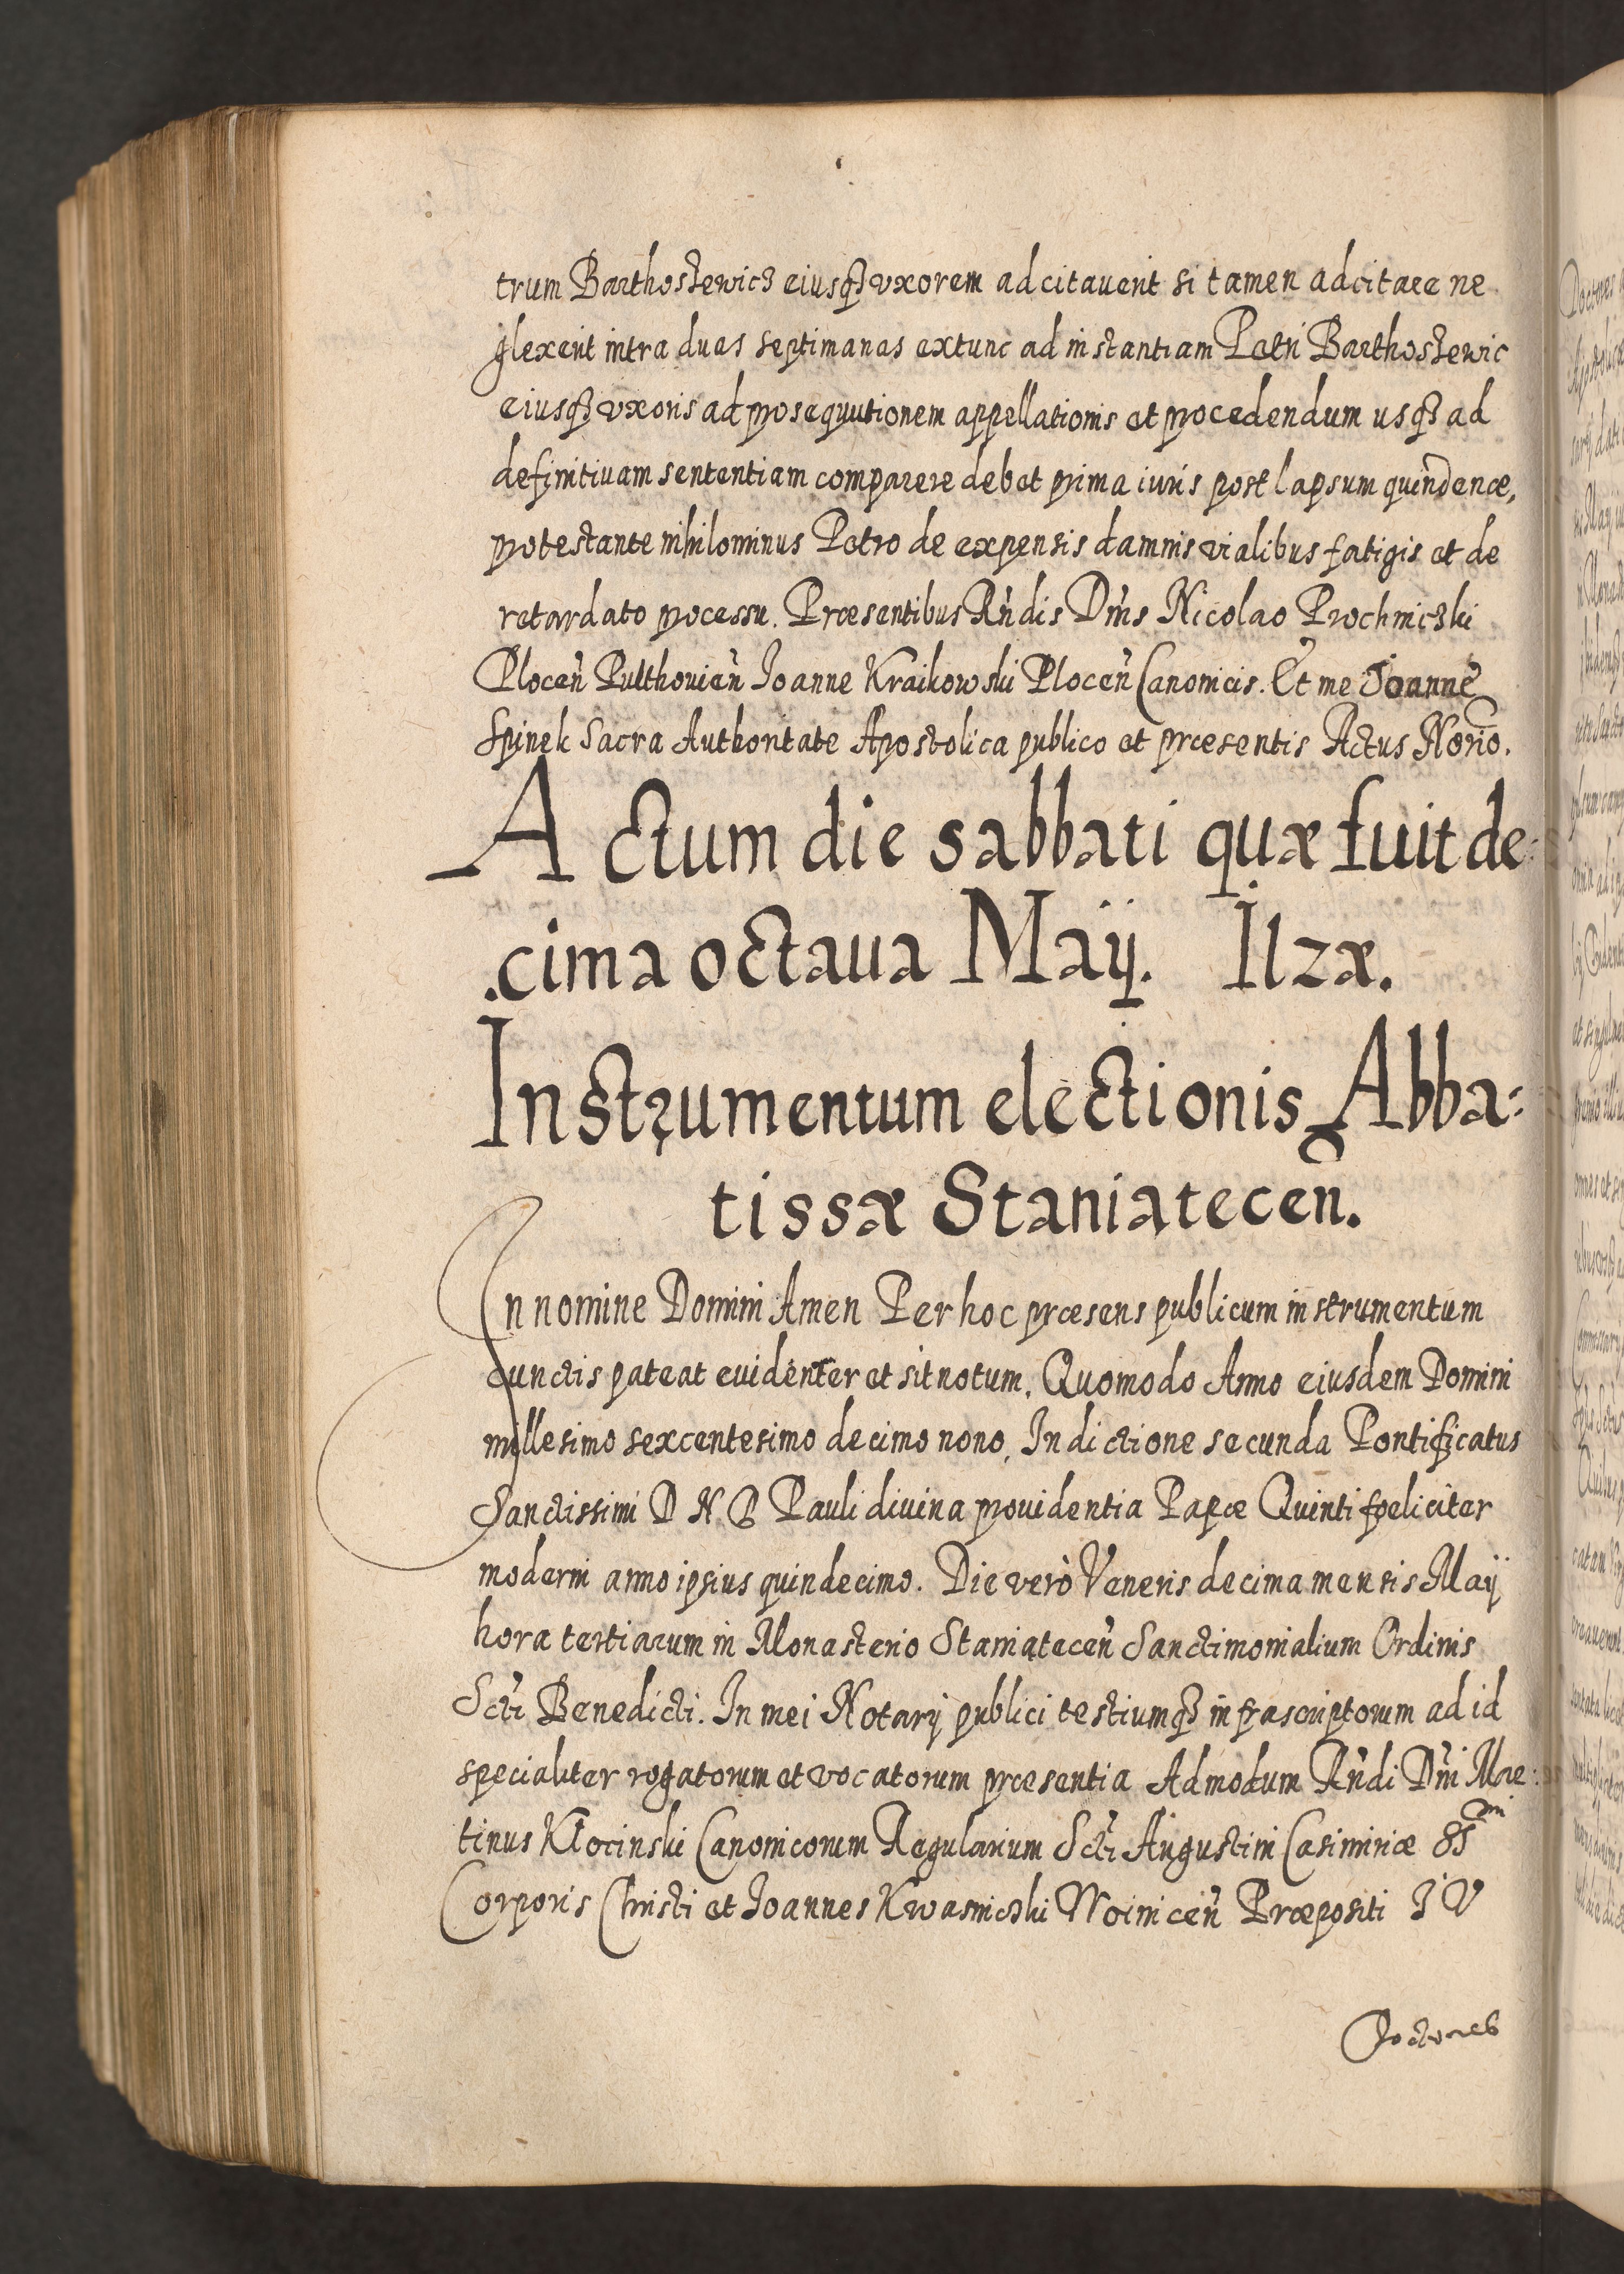 trum Barthoszewicz eiusqȝ vxorem adcitauerit si tamen adcitare ne
glexerit intra duas septimanas extunc ad instantiam Petri Barthoszewic
eiusqȝ vxoris ad prosequutionem appellationis et procedendum usqȝ ad
definitiuam sententiam comparere debet prima iuris post lapsum quindenæ,
protestante nihilominus Petro de expensis damnis vialibus fatigis et de
retardato processu. Præsentibus Rńdis Dńis Nicolao Prochniczki
Ploceń Pulthouień Joanne Kraikowski Ploceń Canonicis. Et me Joanne
Spinek Sacra Authoritate Apostolica publico et præsentis Actus Norio.
Actum die sabbati quæ fuit de:
cima octaua Maij. Ilzæ.
Instrumentum electionis Abba:
tissæ Staniątecen.
In nomine Domini Amen Per hoc præsens publicum instrumentum
cunctis pateat euidenter et sit notum. Quomodo Anno eiusdem Domini
millesimo sexcentesimo decimo nono, Indictione secunda Pontificatus
Sanctissimi D N D Pauli diuina prouidentia Papæ Quinti fœliciter
moderni anno ipsius quindecimo. Die verò Veneris decima mensis Maij
hora tertiarum in Monasterio Staniąteceń Sanctimonialium Ordinis
Scti Benedicti. In mei Notarij publici testiumqȝ infrascriptorum ad id
specialiter rogatorum et vocatorum præsentia Admodum Rńdi Dńi Mar:
tinus Kłocinski Canonicorum Regularium Scti Augustini Casimiriæ SSmi
Corporis Christi et Joannes Kwasniczki Woiniceń Præpositi J V
Doctores